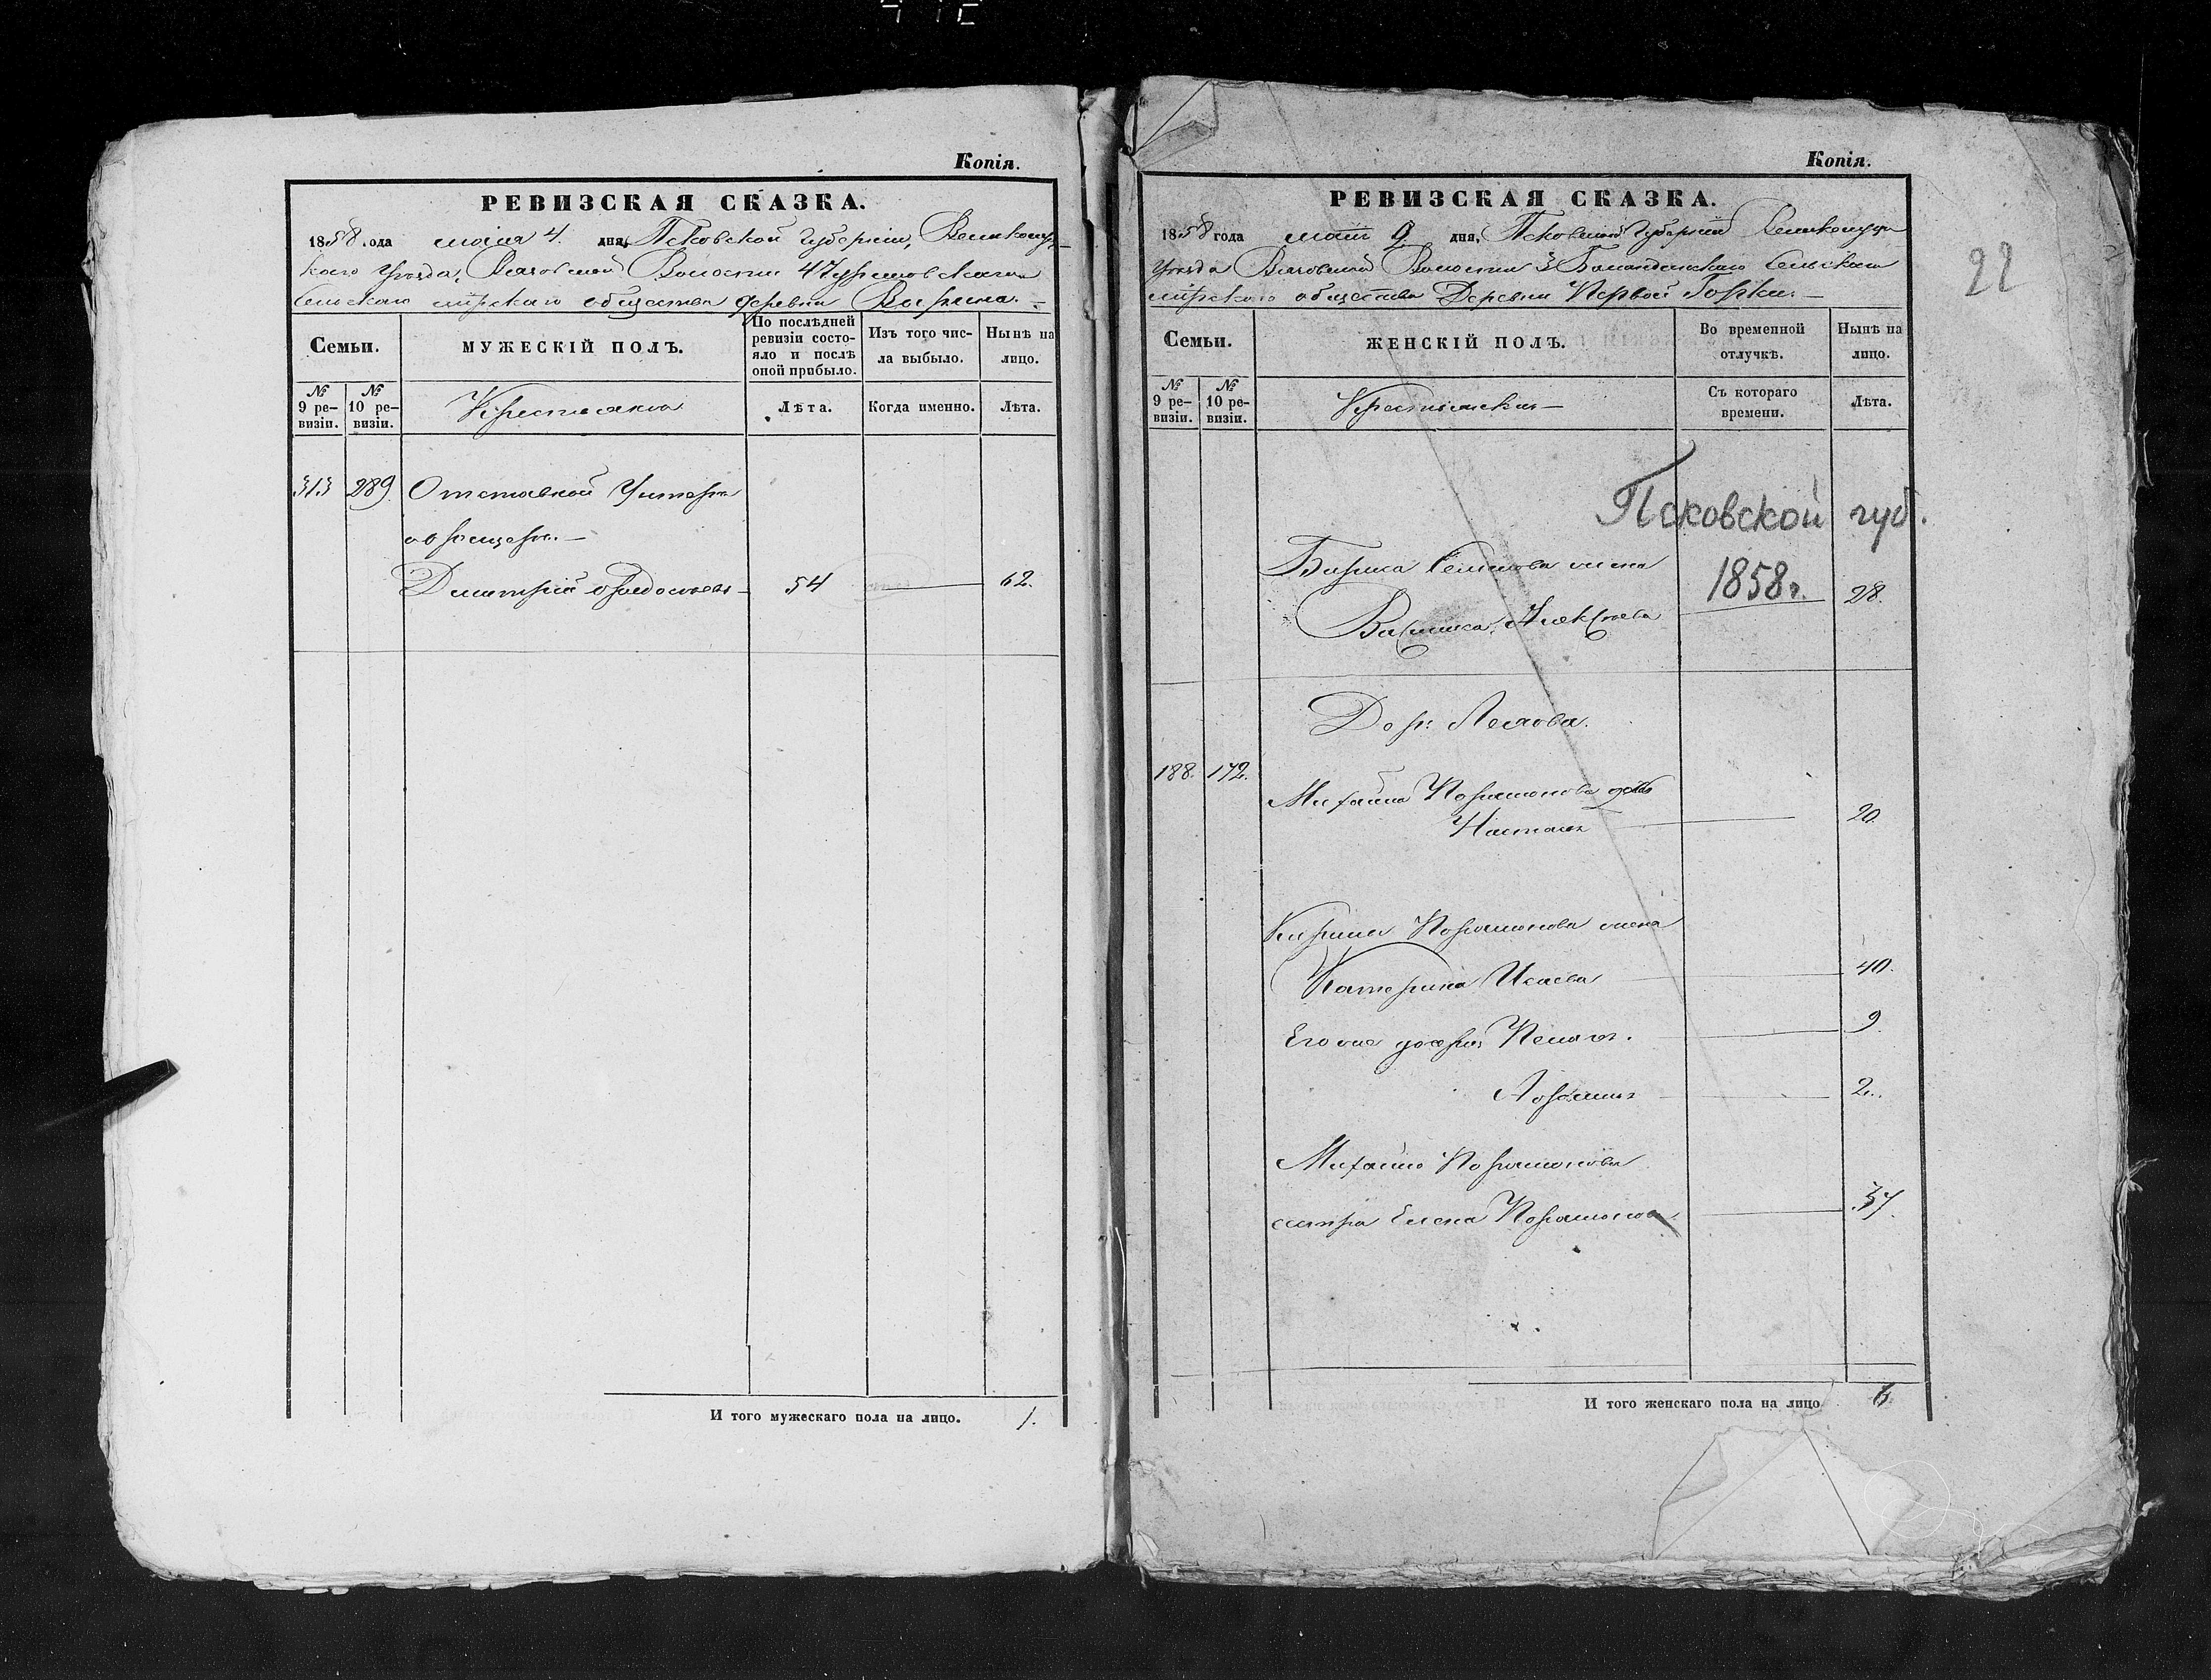 Копія.
РЕВИЗСКАЯ СКАЗКА.
1858 года маія 4. дня, Псковской Губерніи, Великолуц-
каго Уѣзда, Волости 4
Сельскаго мірскаго общества деревни
Семьи.
МУЖЕСКІЙ ПОЛЪ.
По послѣдней ревизіи состояло и послѣ оной прибыло.
Изъ того числа выбыло.
Нынѣ на лицо.
№ 9 ревизіи.
№ 10 ревизіи.
Крестьяне
Лѣта.
Когда именно.
Лѣта.
313 289. Отставной Унтеръ
офицеръ. —
Дмитрій 54 — 62.
И того мужескаго пола на лицо. 1.
Копія.
22
РЕВИЗСКАЯ СКАЗКА.
1858 года маія 9 дня, Псковской Губерніи Великолуцкаго
Уѣзда Волости 3 Сельскаго
мірскаго общества Деревни Первой Горки. —
Семьи.
ЖЕНСКІЙ ПОЛЪ.
Во временной отлучкѣ.
Нынѣ на лицо.
№ 9 ревизіи.
№ 10 ревизіи.
Съ котораго времени.
Лѣта.
Псковской губ.
1858 г.
жена
28.
Дер:
188. 172.
Михайла Парамонова дочь
Наталья 20.
Кирила Парамонова жена
Катерина Исаева 40.
Его же дочери Пелагея. 9.
2.
Михайло Парамонова
сестра Елена Парамонова 37.
И того женскаго пола на лицо 6